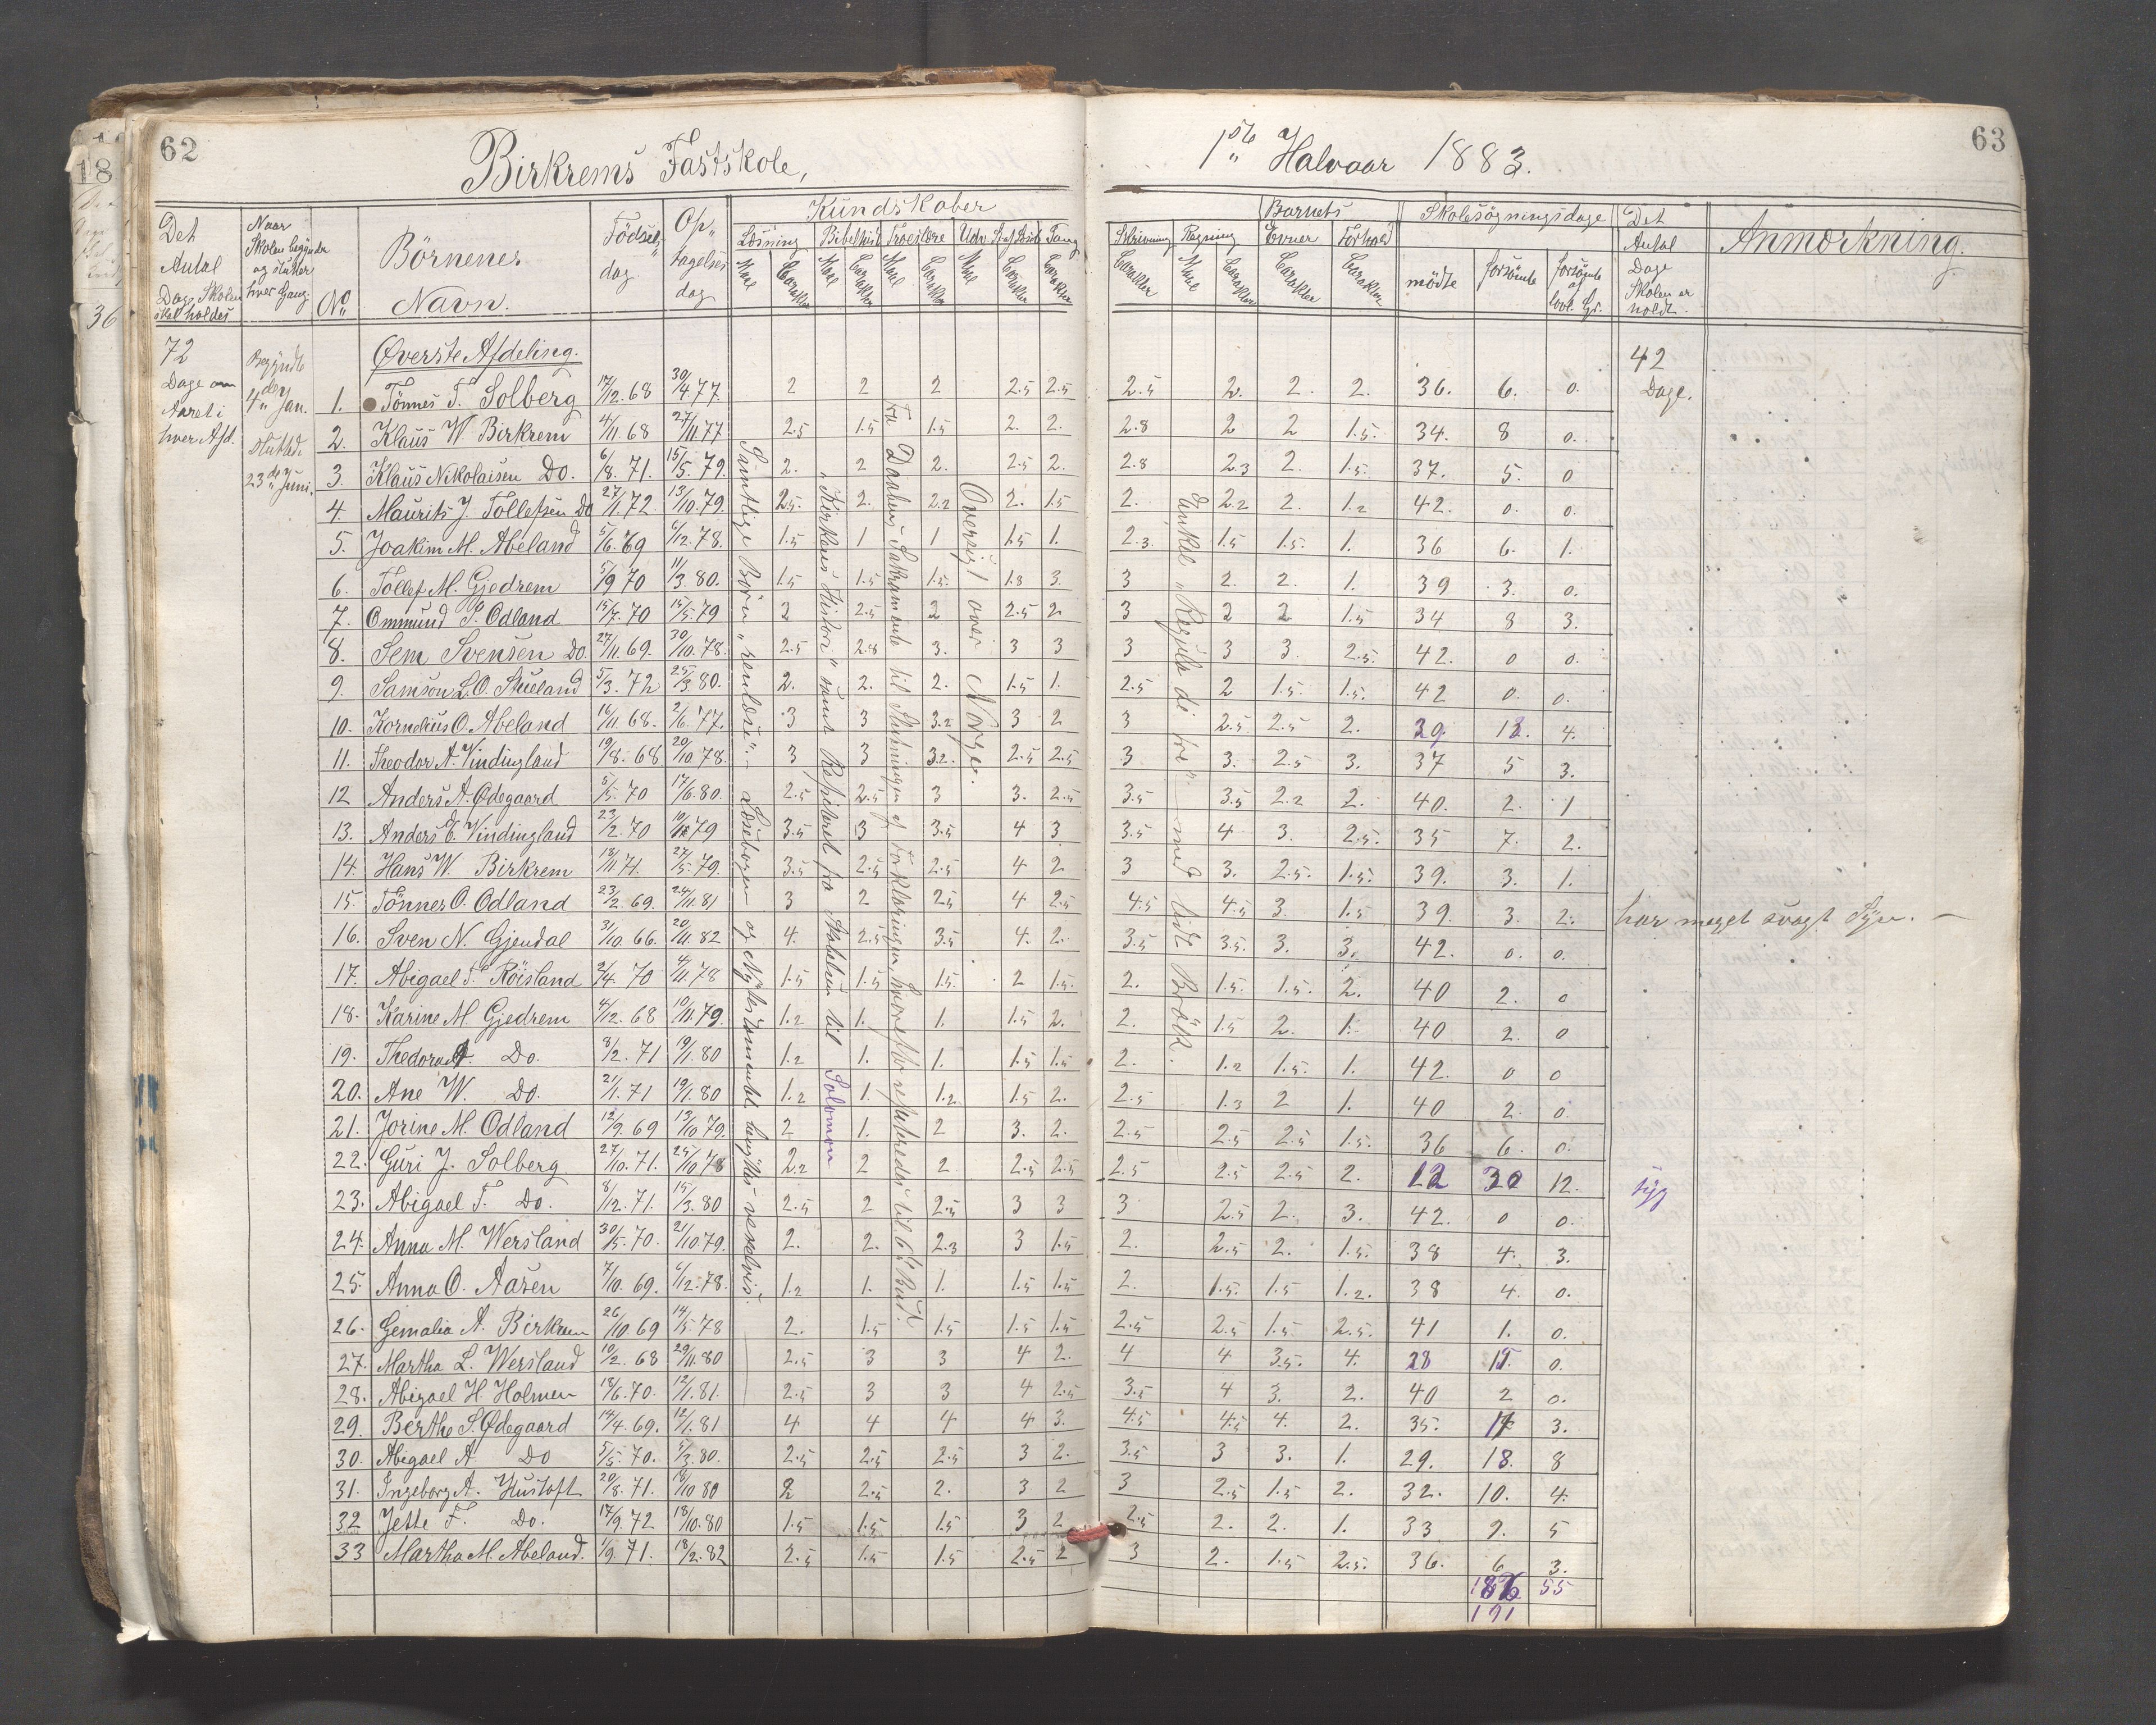 62
Birkrems Fastskole,
1ste Halvaar 1883.
63
Det Antal Dage, Skolen skal holdes
Naar Skolen begynder og slutter hver Gang.
No
Börnenes Navn.
Födselsdag
Optagelsesdag
Kundskaber
Læsning Bibelhist. Troeslære Udv. Sang
Maal Carakter Maal Carakter Maal Carakter Maal Carakter Carakter
Barnets
Skrivning Regning Evner Forhold
Carakter Maal Carakter Carakter Carakter
Skolesögningsdage
mödte forsömte forsömte af lovl. Gr.
Det Antal Dage Skolen er holdt.
Anmærkning.
72 Dage om Aaret i hver Afd.
Begyndte 4de Jan. Sluttede 23de Juni.
Øverste Afdeling.
42 Dage.
1. Tönnes T. Solberg 17/12.68 30/4.77. 2 2 2 2.5 2.5 2.5 2. 2. 2. 36. 6. 0.
2. Klaus W. Birkrem 4/11.68 27/11.77 2.5 1.5 1.5 2. 2. 2.8 2 2 1.5. 34. 8 0.
3. Klaus Nikolaisen Do. 6/8.71. 15/5.79. 2. 2 2. 2.5 2. 2.8 2.3 2. 1.5. 37. 5. 0
4. Maurits J. Tollefsen Do 27/1.72. 13/10.79. 2.5. 2. 2.2 2. 1.5 2. 2.2 2. 1.2 42. 0. 0.
5. Joakim M. Abeland 5/6.69 6/12.78. 1.5 1 1 1.5 1. 2.3. 1.5 1.5. 1. 36 6. 1.
6. Tollef M. Gjedrem 5/9 70 11/3.80. 1.5 1.5 1.5. 1.8 3. 3 2. 2. 1. 39 3. 0.
7. Ommund S. Odland 15/7.70 15/5.79 2 2.5 2 2.5 2 3 2 2 1.5 34 8 3.
8. Sem Svensen Do. 27/11.69. 30/10.78. 2.5 2.8 3. 3 3 3 3 3. 2.5. 42. 0 0.
9. Samson L.O. Skieland 5/3.72 25/3.80. 2. 2. 2. 1.5 1. 2.5 2 1.5. 1.5. 42 0. 0.
10. Kornelius O. Abeland 16/11.68. 2/6.77. 3 3 3.2 3 2 3 2.5 2.5 2. 29. 13. 4.
11. Theodor A. Vindingland 19/8.68 20/10.78. 3 3 3.2. 2.5 2.5 3 3. 2.5 3. 37 5 3.
12 Anders A. Ødegaard 5/5.70 17/6.80. 2.5 2.5 3 3. 2.5 3.5 3.5 2.2 2. 40. 2. 1
13. Anders E. Vindingland 23/2.70 79 3.5 3 3.5 4 3 3.5 4 3. 2.5. 35 7. 2.
14. Hans W. Birkrem 18/11.71. 27/5.79. 3.5 2.5 2.5 4 2 3 3. 2.5. 1.5. 39. 3. 1.
15. Tönnes O. Odland 23/2.69. 24/11.81 3 2 2.5 4 2.5 4.5 4.5 3. 1.5 39. 3. 2. har meget svagt Syn. —
16. Sven N. Gjendal 31/10.66. 20/11.82 4. 2.5 3.5 4. 2. 3.5 3.5. 3. 3. 42. 0. 0.
17. Abigael T. Röisland 2/4.70 4/11.78 1.5 1.5 1.5. 2 1.5. 2. 1.5. 1.5. 2. 40 2. 0
18. Karine M. Gjedrem 4/12.68 10/11.79. 1.2 1. 1. 1.5 2. 2. 1.5 2. 1. 40 2. 0
19. Thedora A. Do. 8/2.71 19/1.80 1.2 1. 1. 1.5 1.5 2. 1.2 1.5. 1. 42. 0 0
20. Ane W. Do. 21/1.71 19/1.80 1.2 1. 1.2 1.5 2. 2.5 1.3 2 1. 40 2. 0.
21. Jorine M. Odland 12/9.69 13/10.79. 2 1. 2 3. 2. 2.5 2.5 2.5 1.5. 36 6. 0.
22. Guri J. Solberg 27/10.71. 25/10.78 2.2 2 2 2.5 2.5 2.5 2.5 2.5 2. 12 30 12. syg
23. Abigael T. Do. 8/12.71. 15/3.80 2.5 2 2.5 3 3 3 2.5 2. 3. 42. 0 0.
24. Anna M. Wersland 30/5.70. 21/10.79. 2. 2. 2.3 3 1.5 2. 2.5 2. 1.5. 38 4. 3.
25. Anna O. Aasen 7/10.69. 6/12.78. 1.2 1. 1. 1.5 1.5 2. 1.5. 1.5 1.2. 38 4. 0.
26. Gemalia A. Birkrem 26/10 69 14/5.78 2. 1.5 1.5 1.5 1.5 2.5 2.5 1.5 2.5. 41 1. 0.
27. Martha L. Wersland 10/2.68 29/11.80 2.5 3 3 4 2. 4 4 3.5. 4. 28 15. 0.
28. Abigael H. Holmen 18/6.70. 12/1.81. 2.5 3 3 4 2.5 3.5 4 3. 2. 40 2 0.
29. Berthe S. Ødegaard 14/4.69. 12/1.81 4 4 4 4 3. 4.5 4.5 4. 2. 35. 3.
30. Abigael A. Do 5/5.70. 5/3.80. 2.5 2.5 2.5 3 2. 3.5 3 3. 1. 29. 18. 8
31. Ingeborg A. Hustoft 20/8.71. 18/10 80 2 2.5 2. 3 2 3 2.5 1.5 2. 32. 10. 4.
32 Jette T. Do. 17/9.72 18/10.80 1.5 1.5 1.5 3 2 2.5 2. 2. 1. 33 9. 5
33 Martha M. Abeland. 1/9.71. 18/2.82 2.5 1.5 1.5 2.5 2 3 2. 1.5 2.5. 36. 6 3.
55
191
Samtlige Börn „renlæse". – Læsebogen og Nytestamentet benyttes vexelvis.
„Kirkens Historie" samt Repeteret fra Skabelsen til Solomon
Fra Daabens Sakramente til Slutningen af Forklaringen, hvorefter repeteredes til 6te Bud.
Oversigt over Norge.
Enkel „Regula de tri" – med lidt Brök.